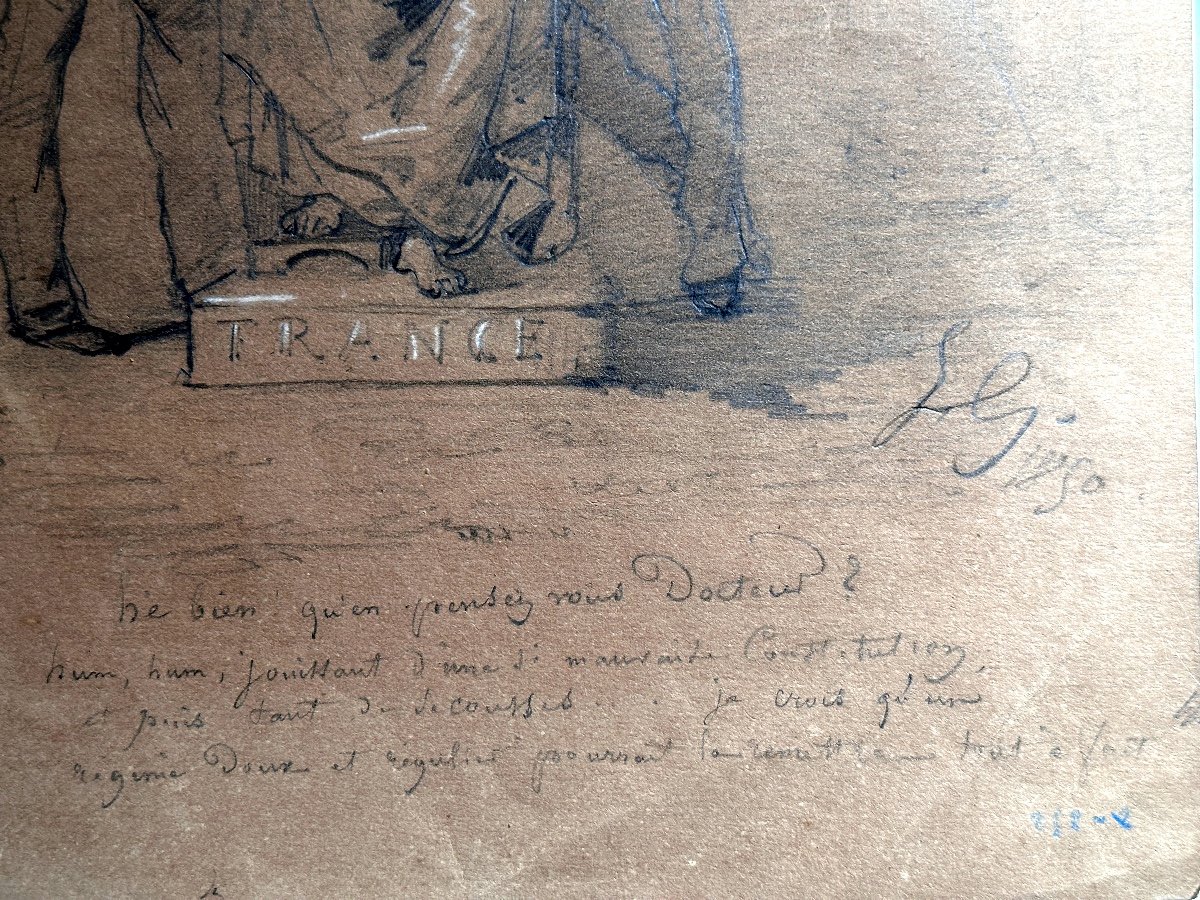 FRANCE
LG.
1850
hé bien! qu'en pensez vous Docteur?
hum, hum, jouissant d'une si mauvaise Constitution,
et puis tant de secousses . . . je crois qu'un
régime Doux et régulier pourrait la remettre tout à fait